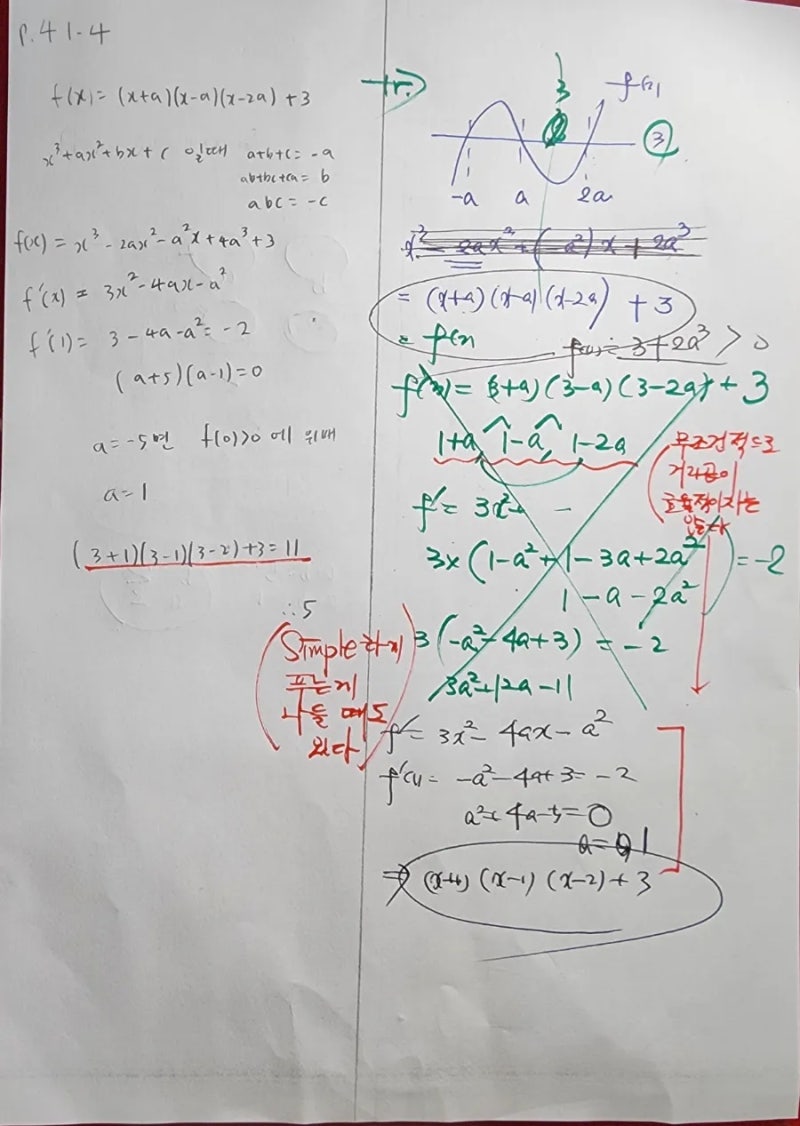 p.41-4
f(x) = (x+a)(x-a)(x-2a) + 3
x³+ax²+bx+c 일때 a+b+c = -a
ab+bc+ca = b
abc = -c
f(x) = x³ - 2ax² - a²x + 4a³ + 3
f'(x) = 3x² - 4ax - a²
f'(1) = 3 - 4a - a² = -2
(a+5)(a-1) = 0
a = -5면 f(0)>0 에 위배
a = 1
(3+1)(3-1)(3-2)+3 = 11
∴ 5
(Simple하게
푸는게
나을 때도
있다)
tr.
3
f(x)
3
-a a 2a
x³ - 2ax² + (-a²)x + 2a³
= (x+a)(x-a)(x-2a) + 3
= f(x)
f(0) = 3+2a³ > 0
f(3) = (3+a)(3-a)(3-2a) + 3
1+a, 1-a, 1-2a
(무조건적으로
거리곱이
효율적이지는
않다)
f' = 3x² -
3×(1-a²+1-3a+2a²) = -2
1-a-2a²
3(-a²-4a+3) = -2
3a²+12a-11
f' = 3x² - 4ax - a²
f'(1) = -a²-4a+3 = -2
a²+4a-5 = 0
a = 1
⇒ (x+1)(x-1)(x-2)+3